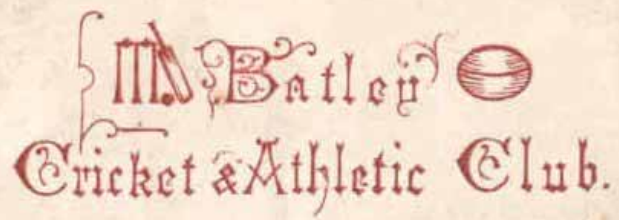 Batley
Cricket & Athletic Club.